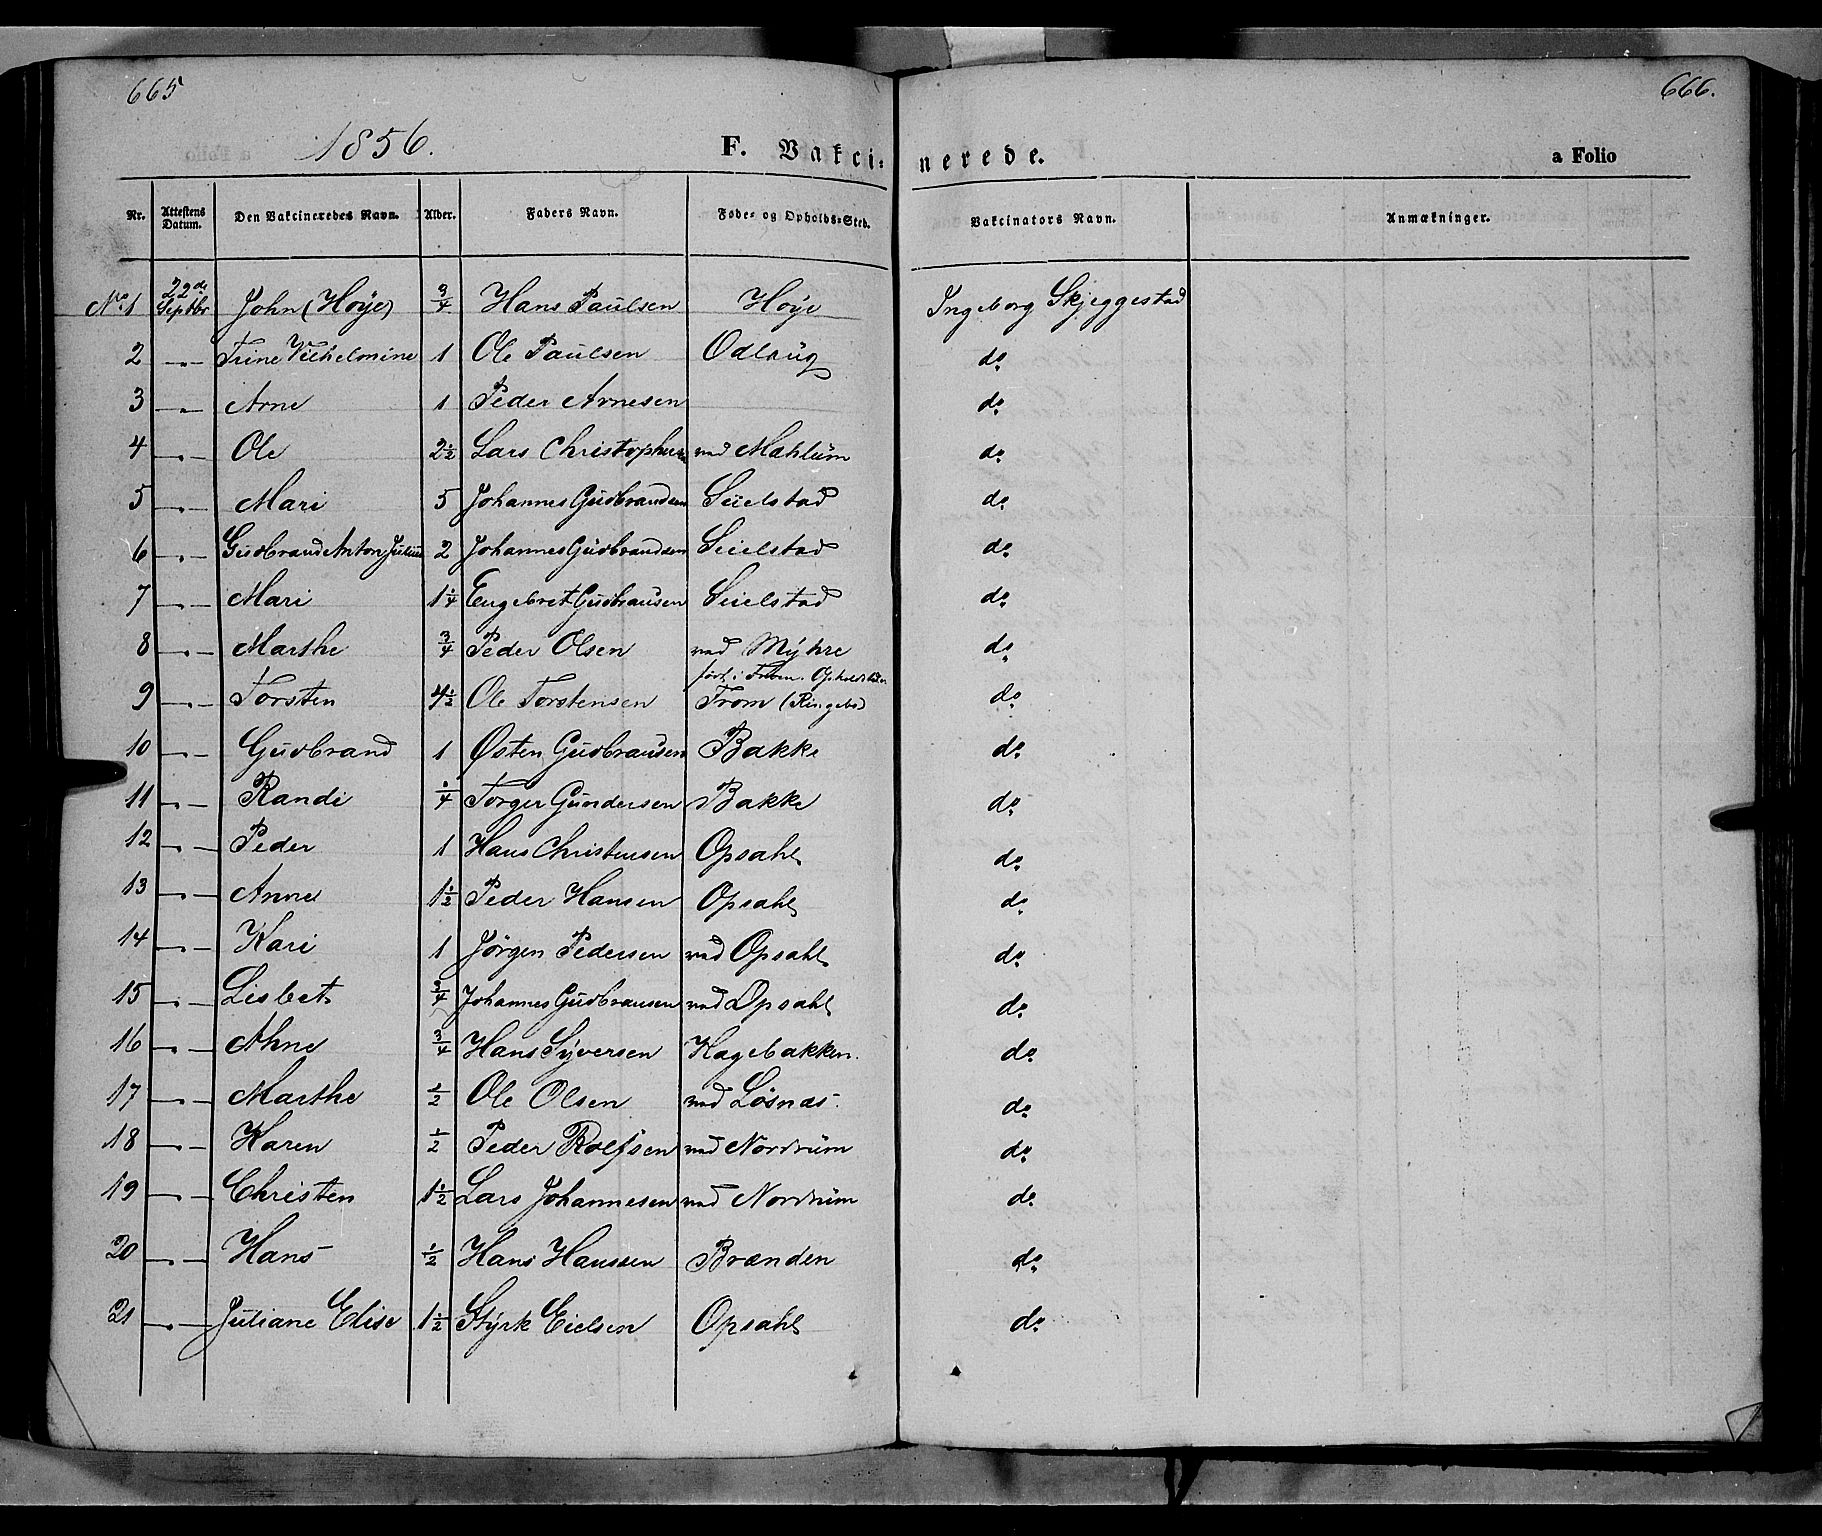 665
666.
1856.
F. Vakci- nerede.
a Folio
Nr. Attestens Datum. Den Vakcineredes Navn. Alder. Faders Navn. Føde- og Opholds-Sted. Vakcinators Navn. Anmækninger.
No 1 22de Septbr John (Höye) 3/4 Hans Paulsen Höye Ingeborg Skjeggestad
2 -"- Trine Vilhelmine 1 Ole Paulsen Odlaug do
3 -"- Arne 1 Peder Arnesen do
4 -"- Ole 2 1/2 Lars Christophersen ved Mæhlum do
5 -"- Mari 5 Johannes Gudbrandsen Seielstad do
6 -"- Gudbrand Anton Julius 2 Johannes Gudbrandsen Seielstad do
7 -"- Mari 1 1/4 Engebret Gudbransen Seielstad do
8 -"- Marthe 3/4 Peder Olsen ved Myhre do
født i
9 -"- Torsten 4 1/2 Ole Torstensen From (Ringebo) do
10 -"- Gudbrand 1 Østen Gudbrausen Bakke do
11 -"- Randi Torger Gundersen Bakke do
12 -"- Peder 1 Hans Christensen Opsahl do
13 -"- Anne 1 1/2 Peder Hansen Opsahl do
14 -"- Kari 1 Jörgen Pedersen ved Opsahl do
15 -"- Lisbet 3/4 Johannes Gudbrausen ved Opsahl do
16 -"- Ahne 3/4 Hans Syversen Hagebakken. do
17 -"- Marthe 1/2 Ole Olsen ved Løsnæs. do
18 -"- Karen 1/2 Peder Rolfsen ved Nordrum do
19 -"- Christen 1 1/2 Lars Johannesen ved Nordrum do
20 -"- Hans 1/2 Hans Hanssen Brænden do
21 -"- Juliane Elise 1 1/2 Styrk Eielsen Opsahl do